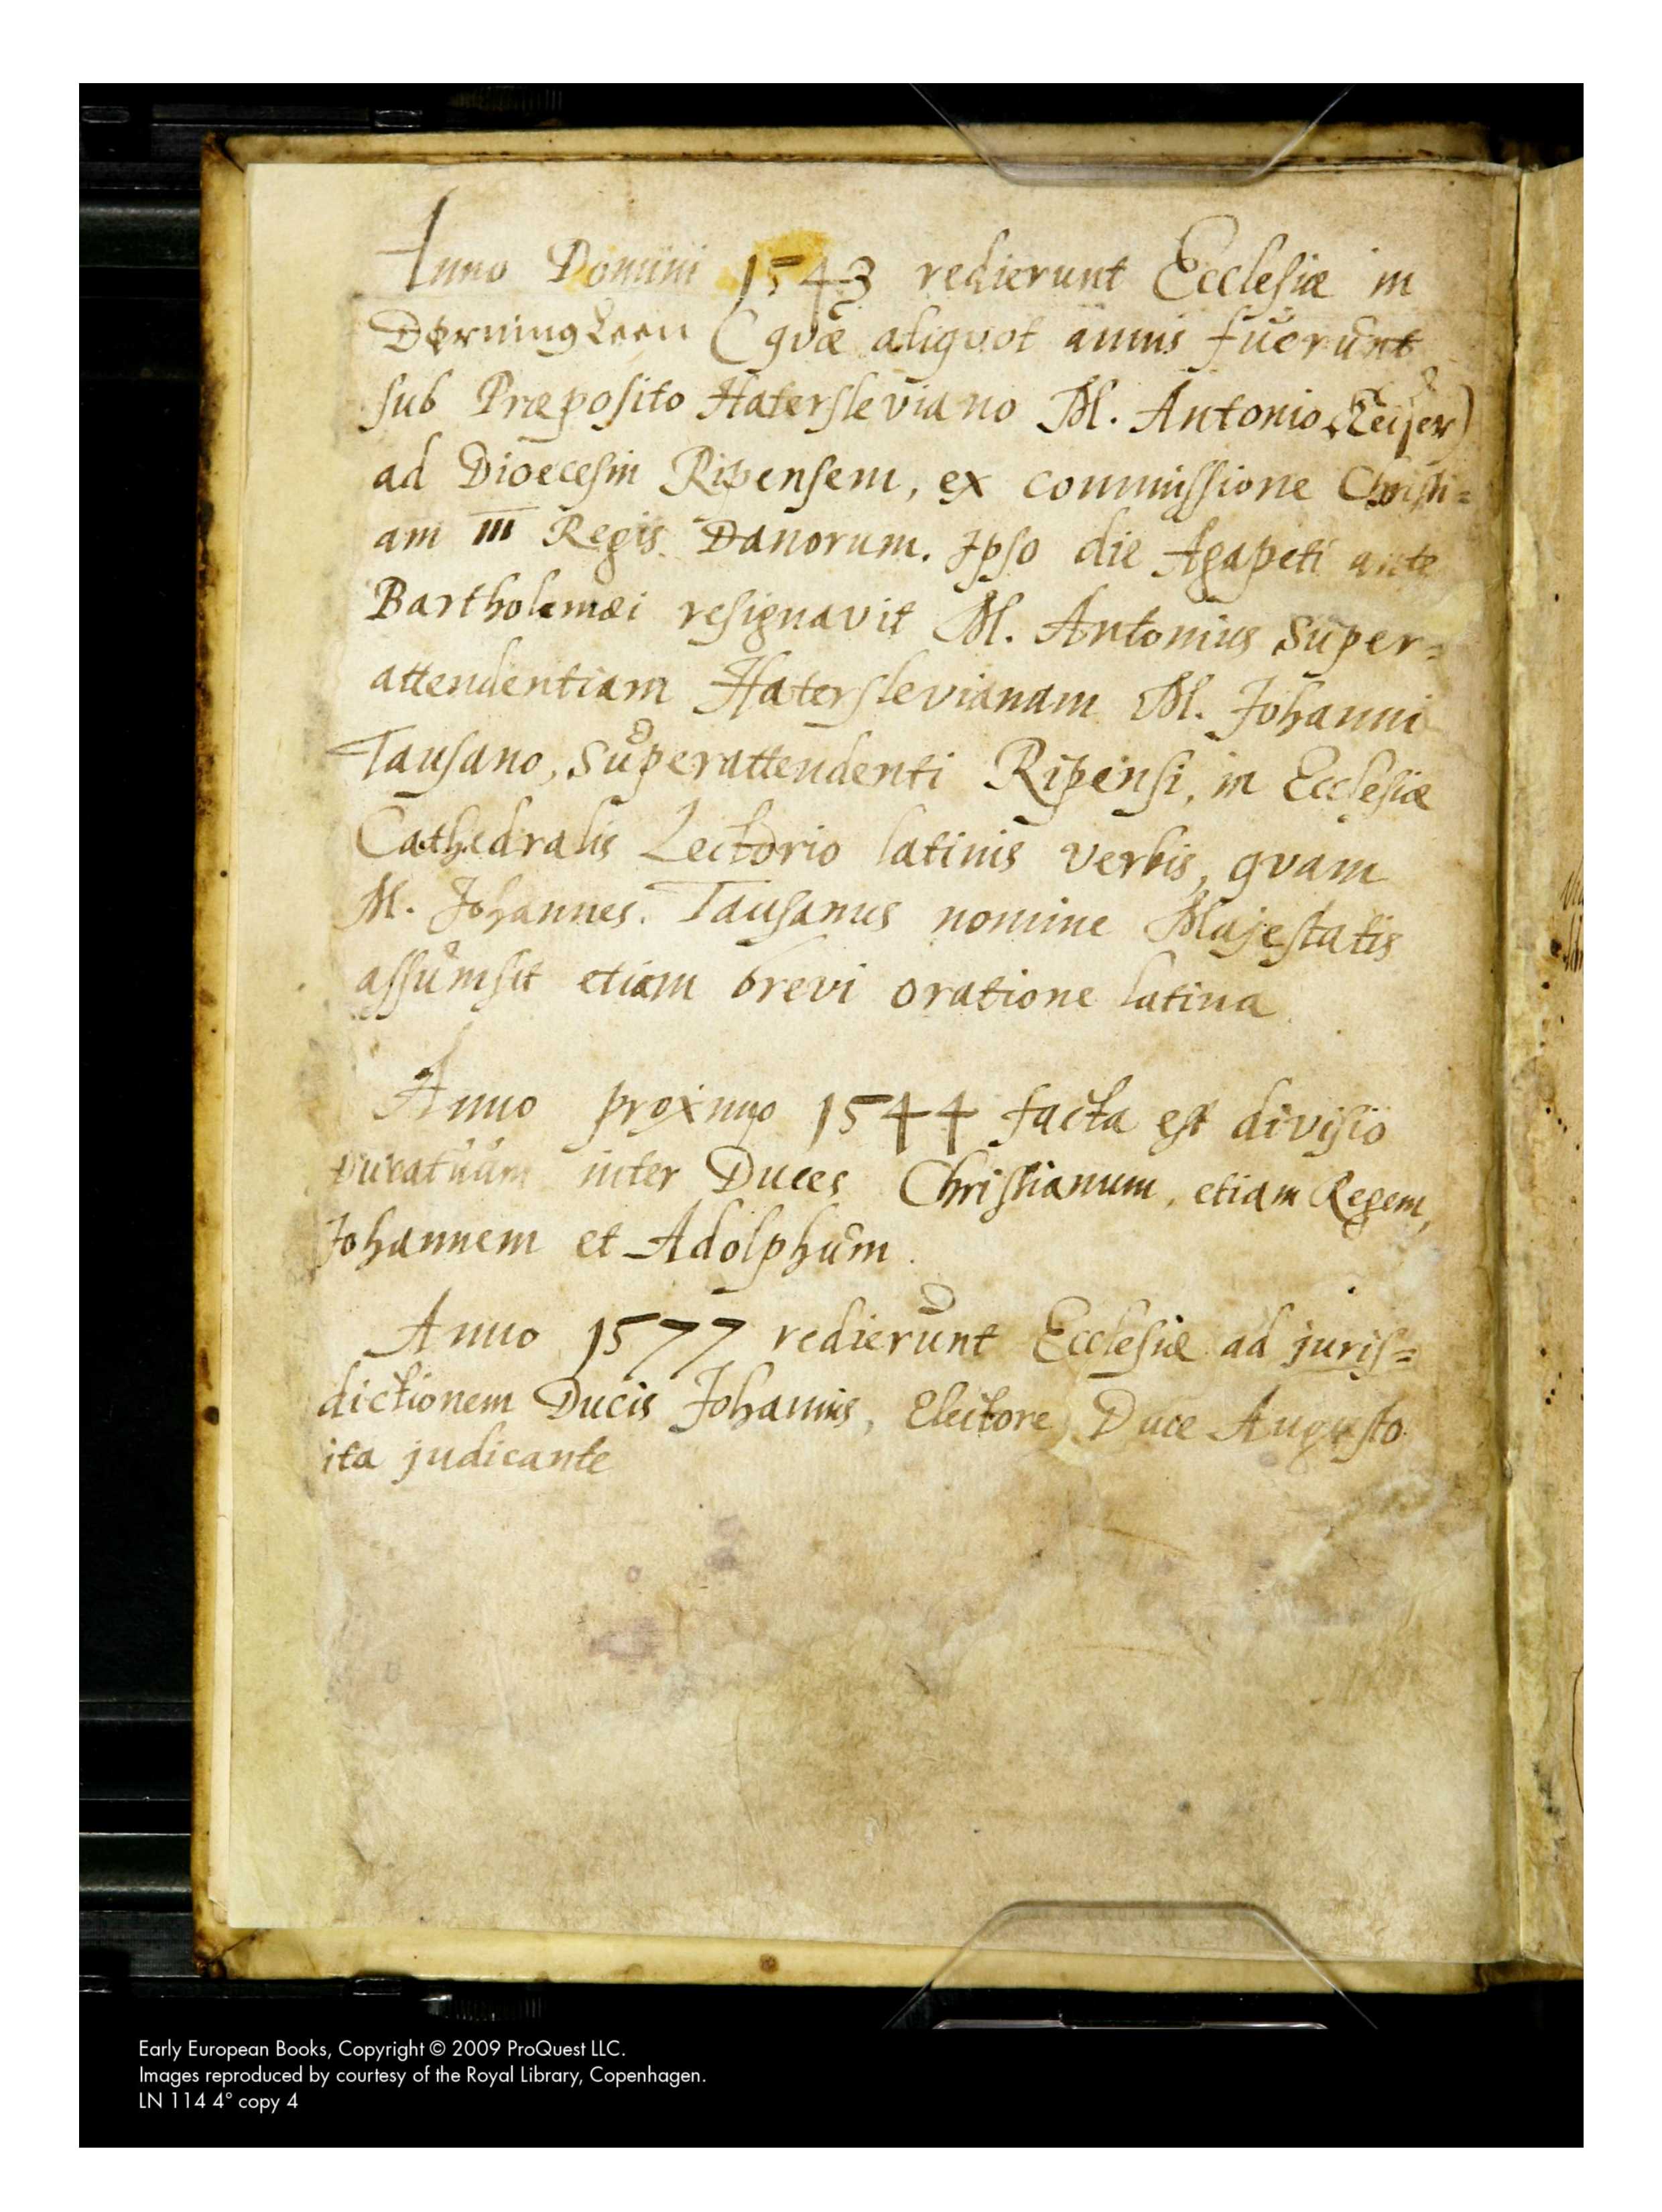 Anno Domini 1543 redierunt Ecclesiæ in
Dørning Leen (qvæ aliqvot annis fuerunt
sub Præposito Hatersleviano M. Antonio Keiser)
ad Dioecesin Ripensem, ex commissione Christi=
ani III Regis Danorum. Ipso die Agapeti ante
Bartholemæi resignavit M. Antonius Super=
attendentiam Haterslevianam M. Johanni
Tausano, Superattendenti Ripensi, in Ecclesiæ
Cathedralis Lectorio latinis verbis, qvam
M. Johannes Tausanus nomine Majestatis
assumsit etiam brevi oratione latina
Anno proximo 1544 facta est divisio
Ducatuum inter Duces Christianum, etiam Regem,
Johannem et Adolphum.
Anno 1577 redierunt Ecclesiæ ad juris=
dictionem Ducis Johannis, Electore Duce Augusto
ita judicante
Early European Books, Copyright © 2009 ProQuest LLC.
Images reproduced by courtesy of the Royal Library, Copenhagen.
LN 114 4° copy 4